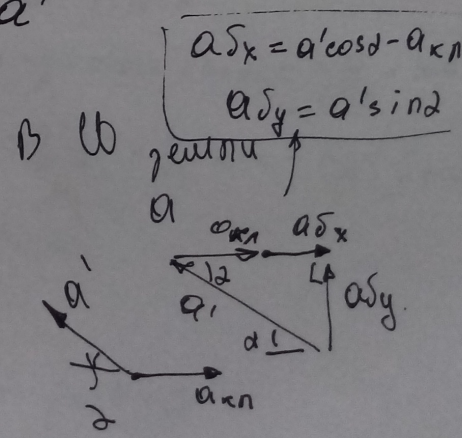 a'
aδx = a'cosα - aкл
aδy = a'sinα
в СО земли
a
aкл aδx
a' α
a' α aδy.
aкл
α